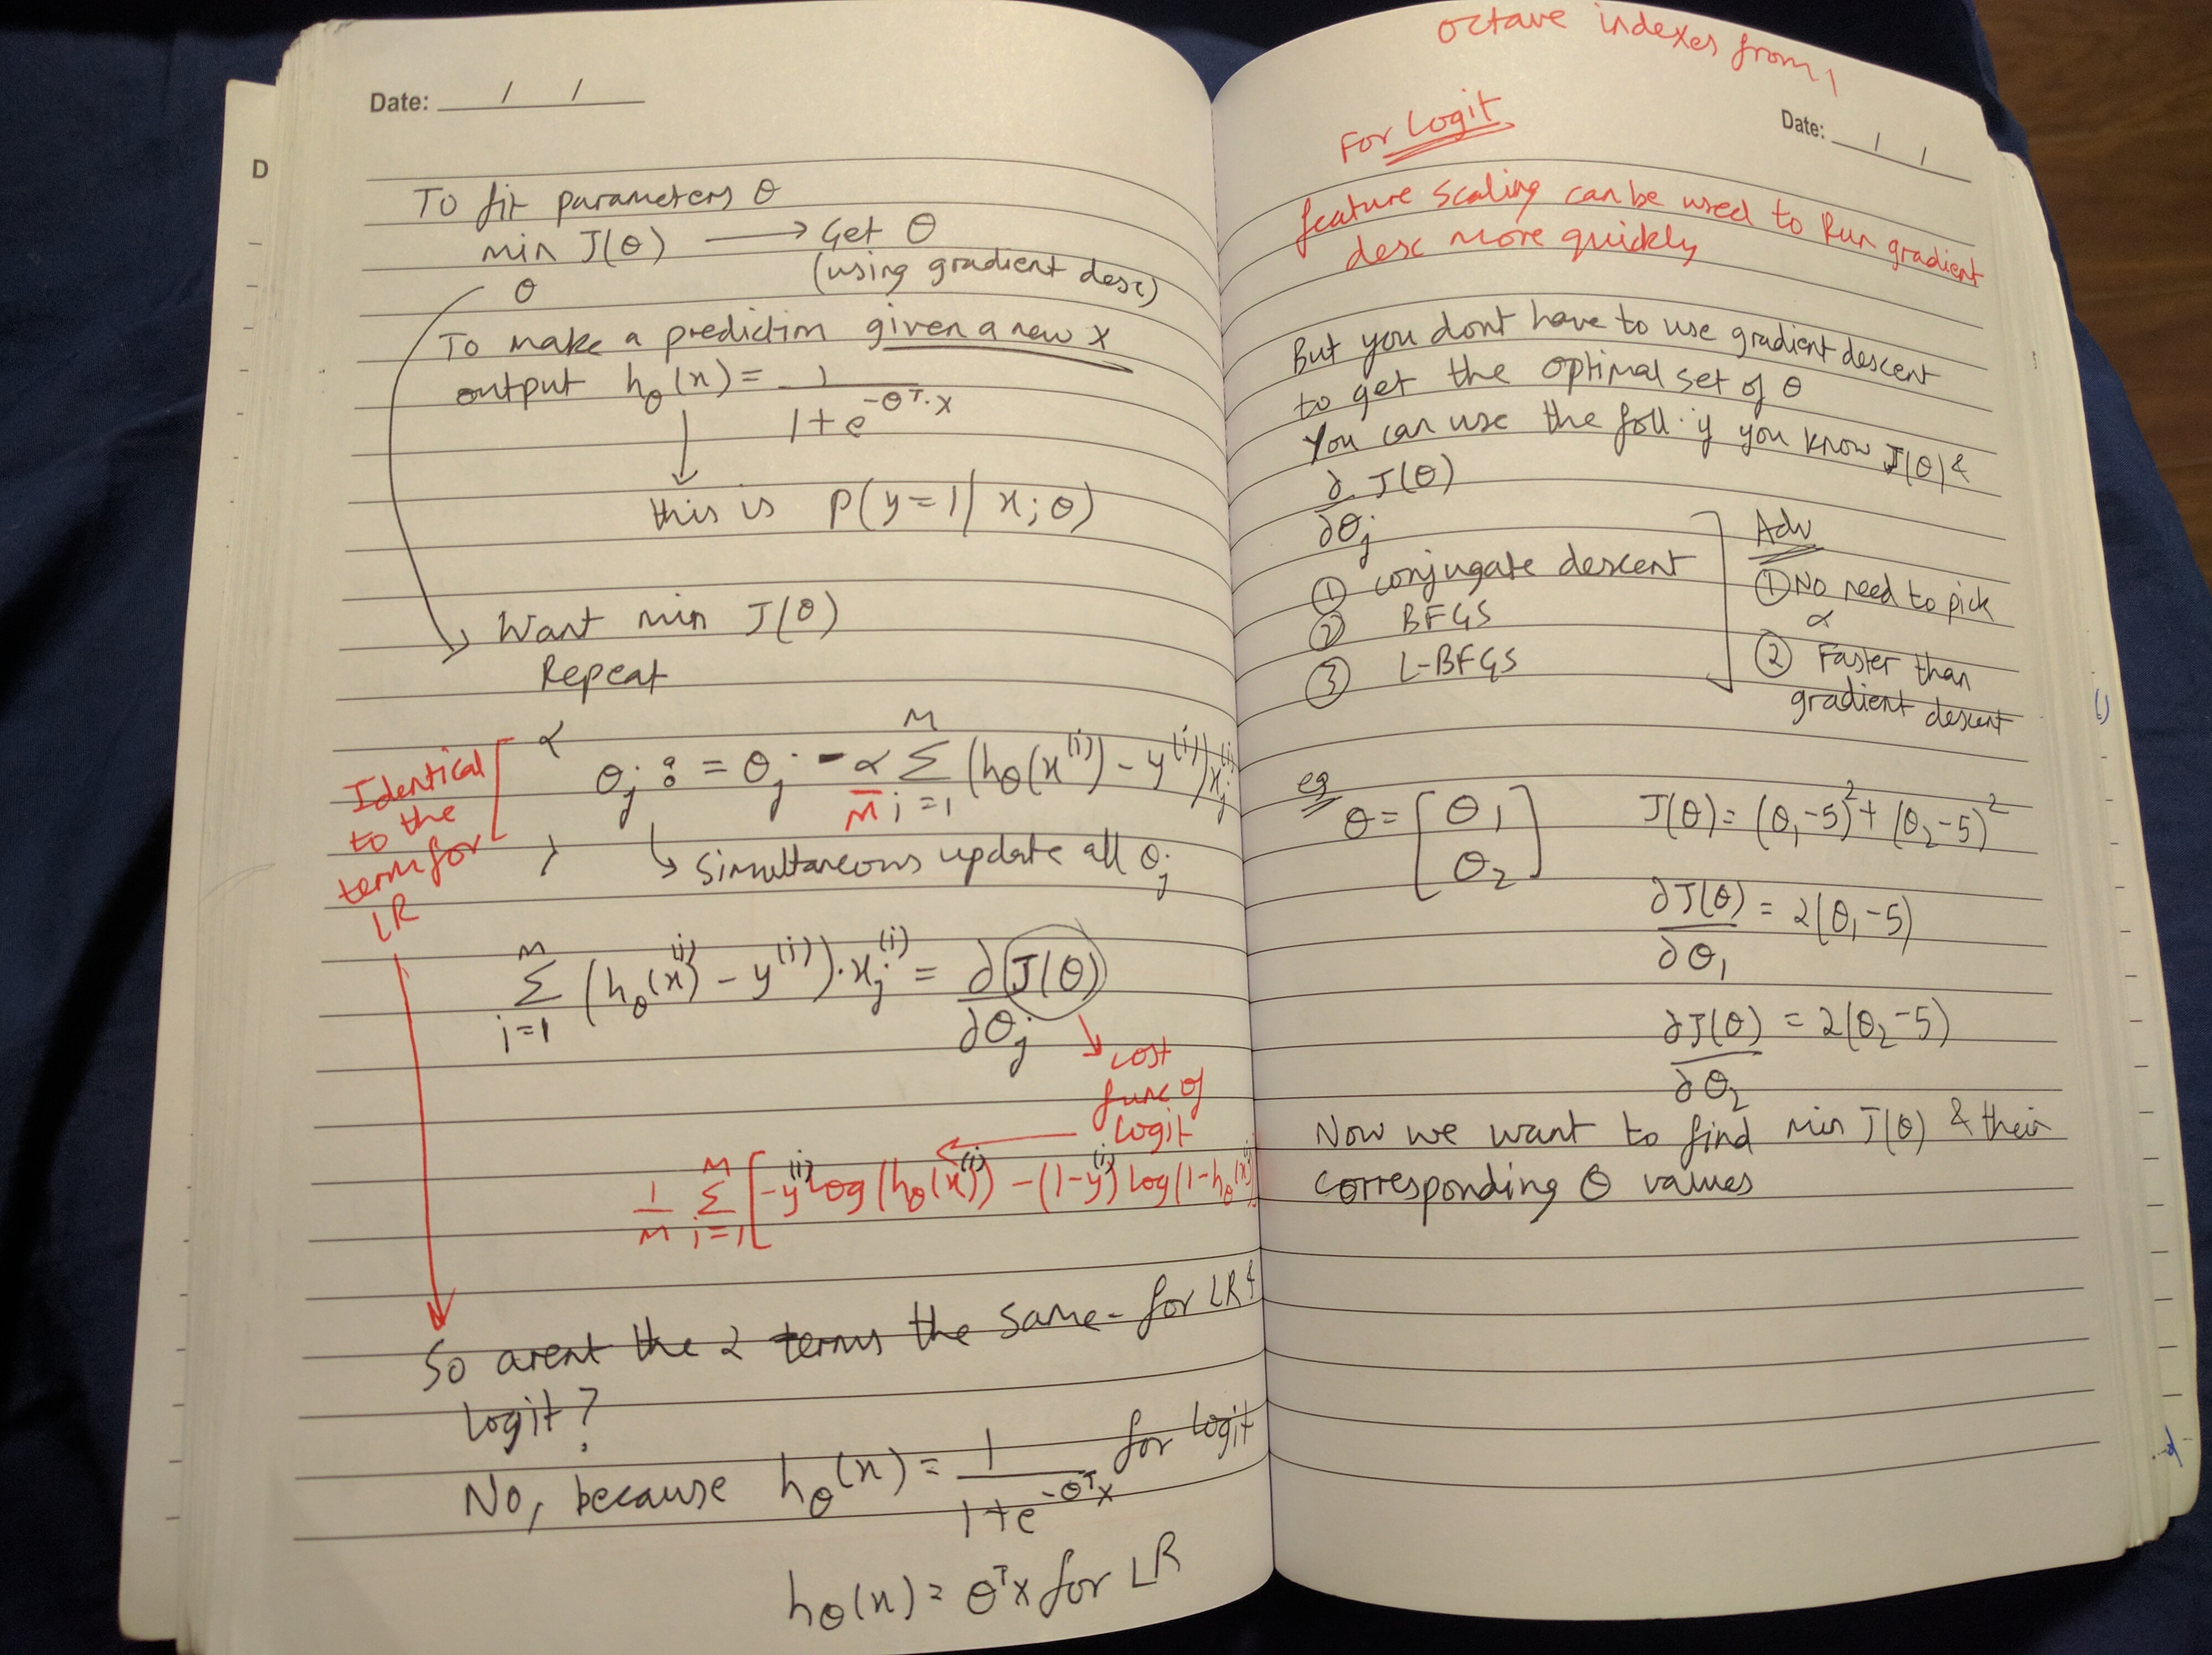 Date: / /
D
To fit parameters θ
min J(θ) → Get θ
θ (using gradient desc)
To make a prediction given a new X
output hθ(x) = 1
1 + e^-θᵀ.x
this is P(y=1 | x; θ)
Want min J(θ)
Repeat
Identical
to the
term for
LR
θj := θj - α/M Σ_{i=1}^{M} (hθ(x^(i)) - y^(i)) xj^(i)
Simultaneous update all θj
Σ_{i=1}^{M} (hθ(x^(i)) - y^(i)) . xj^(i) = ∂ J(θ) / ∂θj
cost
func of
Logit
1/M Σ_{i=1}^{M} [-y^(i) log(hθ(x^(i))) - (1-y^(i)) log(1-hθ(x^(i))
So arent the 2 terms the same - for LR &
Logit?
No, because hθ(x) = 1 / 1+e^-θᵀx for logit
hθ(x) = θᵀx for LR
octave indexes from 1
Date: / /
For Logit
feature scaling can be used to Run gradient
desc more quickly
But you dont have to use gradient descent
to get the optimal set of θ
You can use the foll. if you know J(θ) &
∂ J(θ)
∂θj
① conjugate descent
② BFGS
③ L-BFGS
Adv
① No need to pick
α
② Faster than
gradient descent
eg
θ = [θ1 θ2] J(θ) = (θ1-5)² + (θ2-5)²
∂J(θ) / ∂θ1 = 2(θ1-5)
∂J(θ) / ∂θ2 = 2(θ2-5)
Now we want to find min J(θ) & their
corresponding θ values